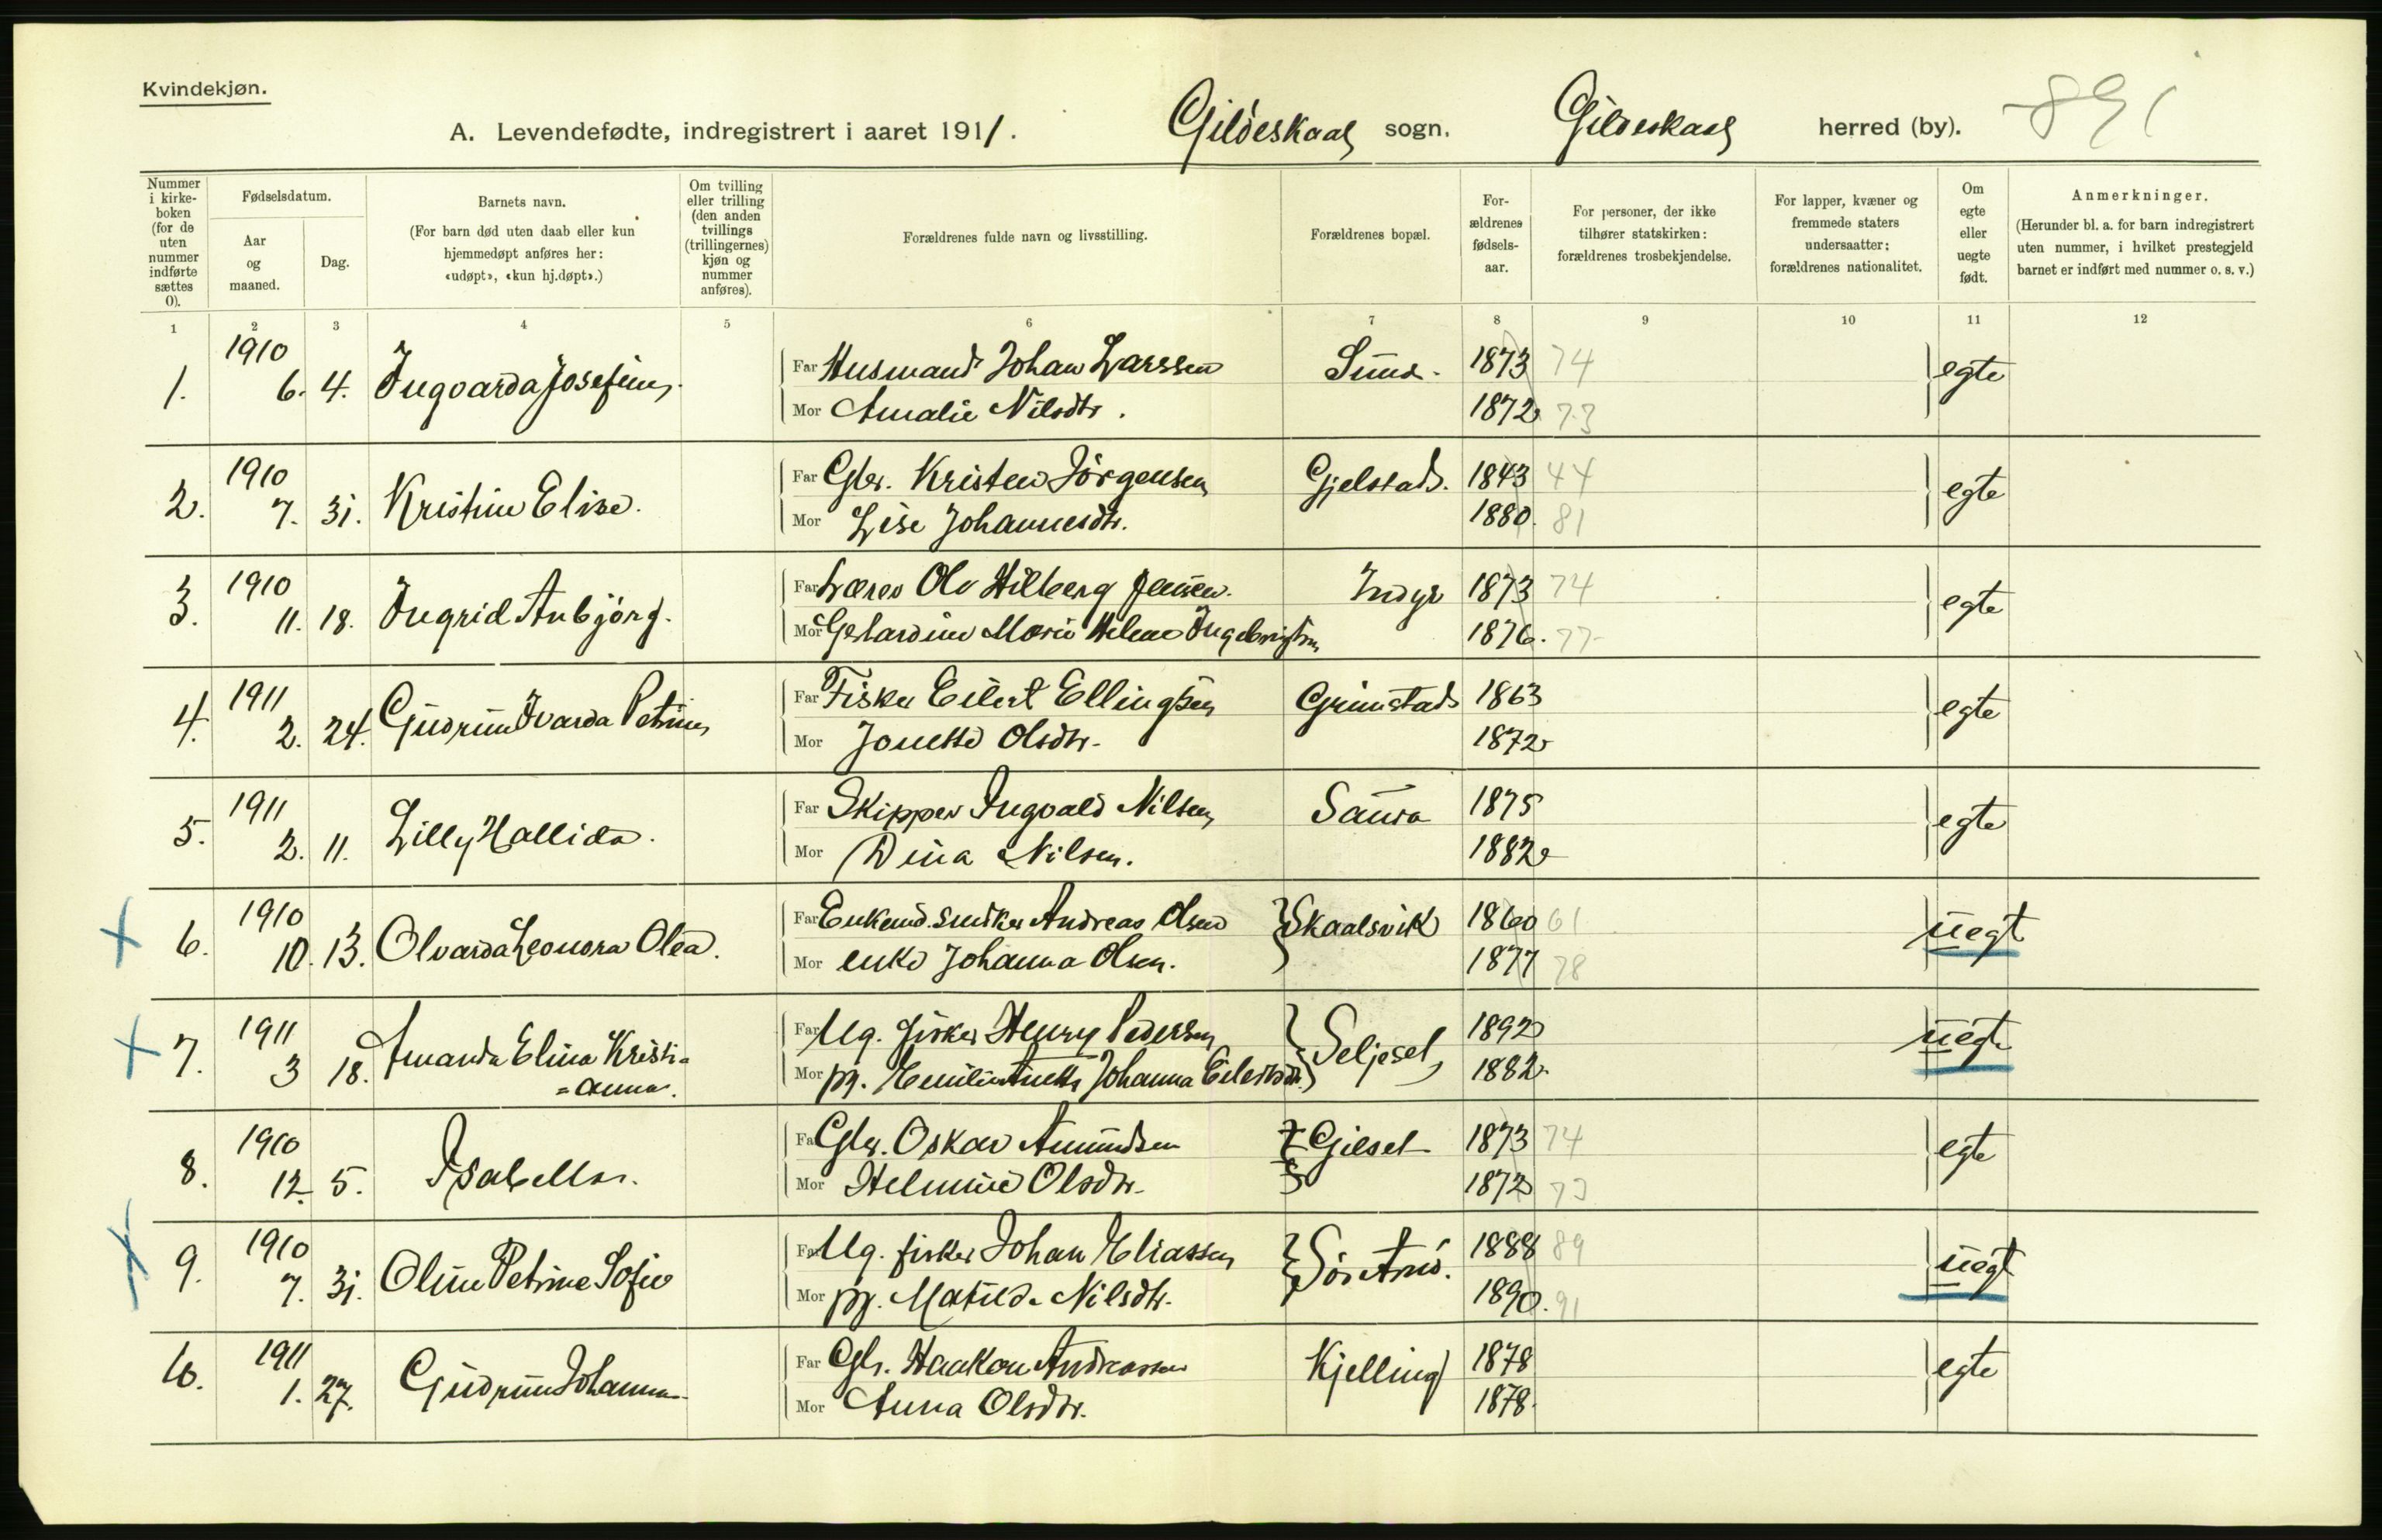 Kvindekjøn.
A. Levendefødte, indregistrert i aaret 1911. Gildeskaal sogn. Gildeskaal herred (by). 891
Nummer i kirke-boken (for de uten nummer indførte sættes 0).
Fødselsdatum.
Aar og maaned.
Dag.
Barnets navn.
(For barn død uten daab eller kun hjemmedøpt anføres her: «udøpt», «kun hj.døpt».)
Om tvilling eller trilling (den anden tvillings (trillingernes) kjøn og nummer anføres).
Forældrenes fulde navn og livsstilling.
Forældrenes bopæl.
For-ældrenes fødsels-aar.
For personer, der ikke tilhører statskirken: forældrenes trosbekjendelse.
For lapper, kvæner og fremmede staters undersaatter; forældrenes nationalitet.
Om egte eller uegte født.
Anmerkninger.
(Herunder bl. a. for barn indregistrert uten nummer, i hvilket prestegjeld barnet er indført med nummer o. s. v.)
1 2 3 4 5 6 7 8 9 10 11 12
1. 1910 6. 4. Ingvarda Josefine. Far Husmand Johan Larssen Sund. 1873 74 egte
Mor Amalie Nilsdtr. 1872 73
2. 1910 7. 31. Kristine Elise. Far Gbr. Kristen Jörgensen Gjelstad. 1843 44 egte
Mor Lise Johannesdtr. 1880. 81
3. 1910 11. 18. Ingrid Anbjörg. Far Lærer Ole Hilberg Jensen. Indyr 1873 74 egte
Mor Gerhardine Marie Helene Ingebrigtsen 1876. 77
4. 1911 2. 24. Gudrun Ivarda Petrine Far Fisker Eilert Ellingsen Grimstad 1863 egte
Mor Jonette Olsdtr. 1872
5. 1911 2. 11. Lilly Hallida. Far Skipper Ingvald Nilsen Saura 1875 egte
Mor Dina Nilsen. 1882
6. 1910 10. 13. Olvarda Leonora Olea. Far Enkemd. Snedker Andreas Olsen Skaalsvik 1860 61 uegt
Mor enke Johanna Olsen. 1877 78
7. 1911 3 18. Amanda Elina Kristi=
=anna. Far Ug. fisker Henry Pedersen Seljeset 1892 uegt
Mor pg. Emilie Anette Johanna Eilertsdtr. 1882.
8. 1910 12. 5. Isabella. Far Gbr. Oskar Amundsen Gjeset 1873 74 egte
Mor Helmine Olsdtr. 1872 73
9. 1910 7. 31. Oline Petrine Sofie Far Ug. fisker Johan Eliassen Sör Arnö. 1888 89 uegt
Mor pg. Matilde Nilsdtr. 1890. 91
10. 1911 1. 27. Gudrun Johanna Far Gbr. Haakon Andreassen Kjelling 1878 egte
Mor Anna Olsdtr. 1878.